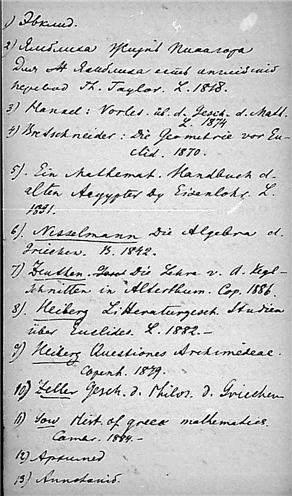 1) Эвклид.
2) Ямблиха Жизнь Пиѳагора
Для Ямблиха есть англійскій
перевод Th. Taylor. L. 1818.
3) Hankel: Vorles. üb. d. Gesch. d. Math.
L. 1874
4) Bretschneider: Die Geometrie vor Eu-
clid. 1870.
5). Ein Mathemat. Handbuch d.
alten Aegypter by Eisenlohr. L.
1891.
6). Nesselmann Die Algebra d.
Griechen. B. 1842.
7) Zeuthen. Die Lehre v. d. Kegl-
schnitten in Alterthum. Cop. 1886
8). Heiberg Litteraturgesch. Studien
über Euclides. L. 1882 –
9) Heiberg Questiones Archimedeae.
Copenh. 1879.
10) Zeller Gesch. d. Philos. d. Griechen
11) Gow Hist. of greek mathematics.
Camb. 1884. –
12) Архимед
13) Апполоній.